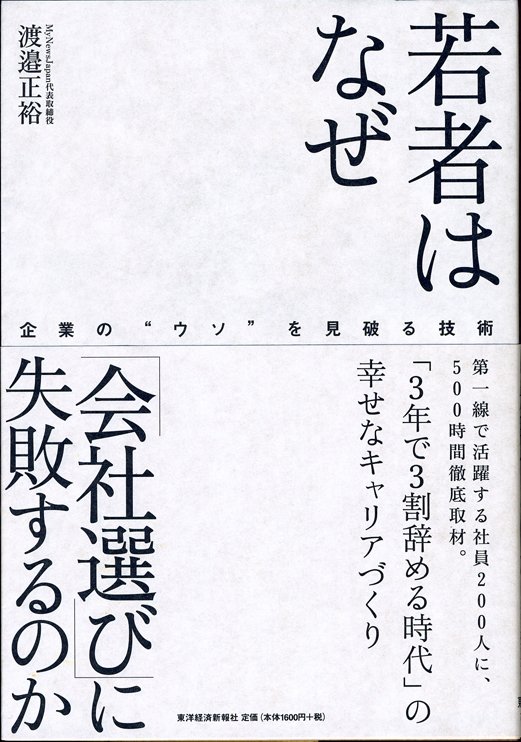 若者は
なぜ
「会社選び」に
失敗するのか
MyNewsJapan代表取締役
渡邉正裕
企業の“ウソ”を見破る技術
第一線で活躍する社員200人に、
500時間徹底取材。
「3年で3割辞める時代」の
幸せなキャリアづくり
東洋経済新報社 定価(本体1600円+税)